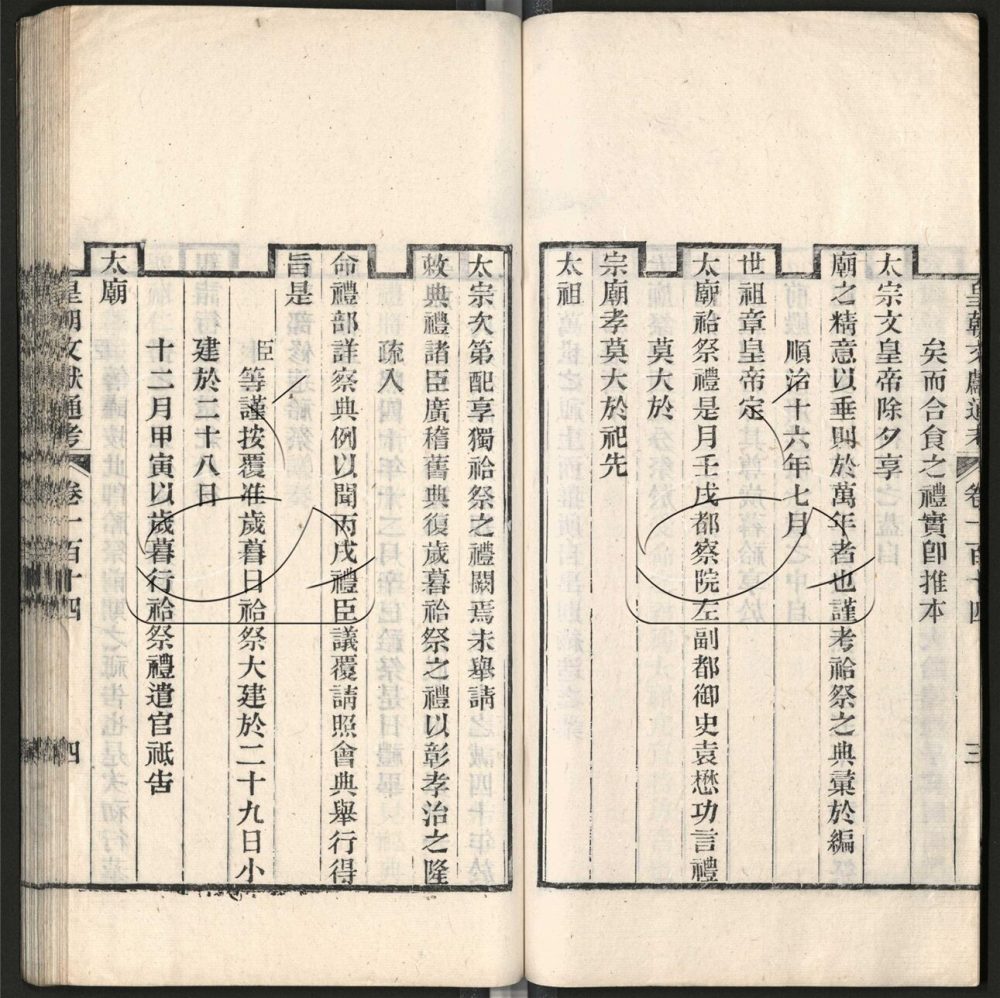 皇朝文獻通考 卷一百十四 三
矣而合食之禮實卽推本
太宗文皇帝除夕享
廟之精意以垂則於萬年者也謹考祫祭之典彙於編
順治十六年七月
世祖章皇帝定
太廟祫祭禮是月壬戌都察院左副都御史袁懋功言禮
莫大於
宗廟孝莫大於祀先
太祖
太宗次第配享獨祫祭之禮闕焉未舉請
敕典禮諸臣廣稽舊典復歲暮祫祭之禮以彰孝治之隆
疏入
命禮部詳察典例以聞丙戌禮臣議覆請照會典舉行得
旨是
臣等謹按覆准歲暮日祫祭大建於二十九日小
建於二十八日
十二月甲寅以歲暮行祫祭禮遣官祗告
太廟
皇朝文獻通考 卷一百十四 四